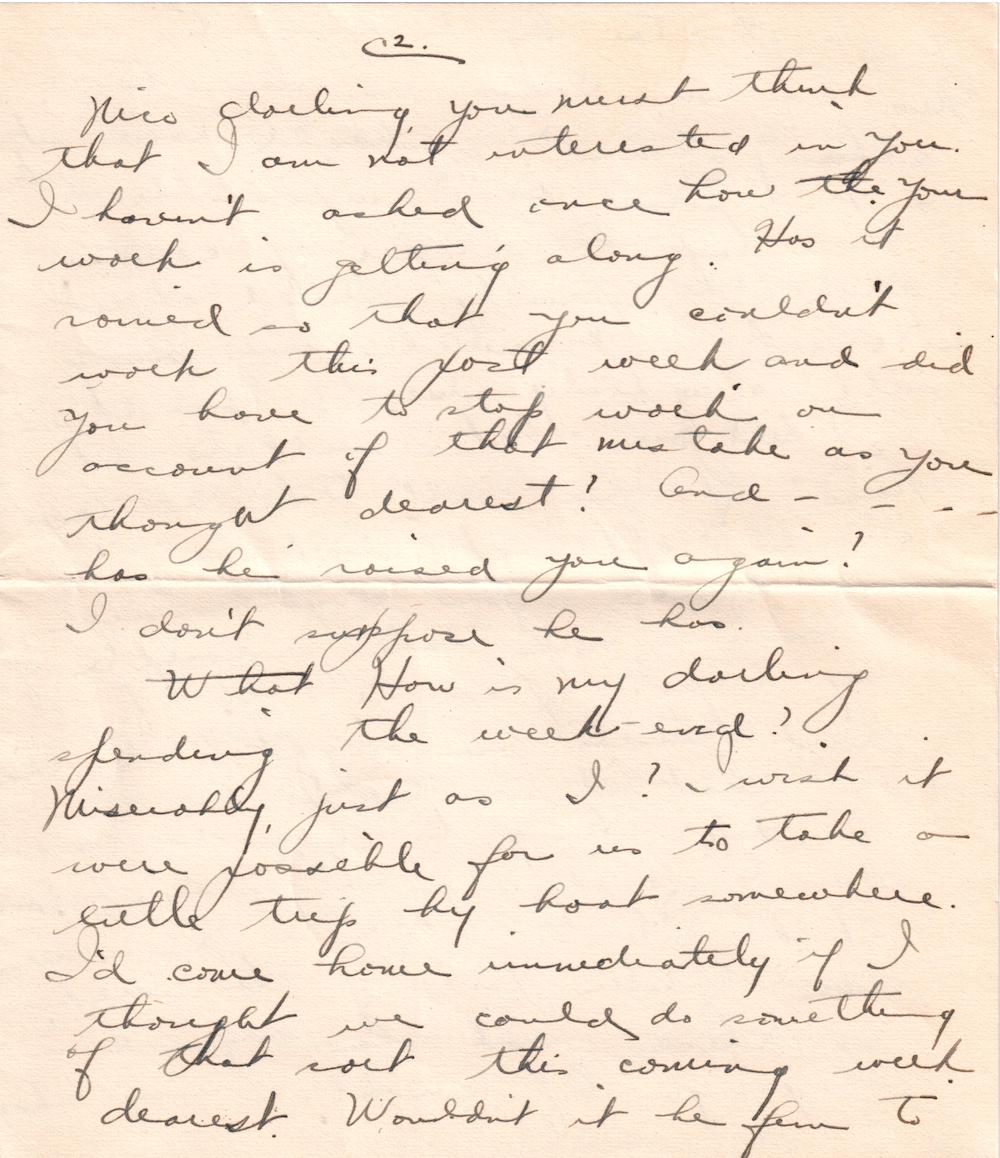 2.
Nico darling, you must think
that I am not interested in you.
I haven't asked once how the your
work is getting along. Has it
rained so that you couldn't
work this past week and did
you have to stop work on
account of that mistake as you
thought dearest? And - - - -
has he raised you again?
I don't suppose he has.
What How is my darling
spending the week-end?
Miserably, just as I? I wish it
were possible for us to take a
little trip by boat somewhere.
I'd come home immediately if I
thought we could do something
of that sort this coming week
dearest. Wouldn't it be fun to